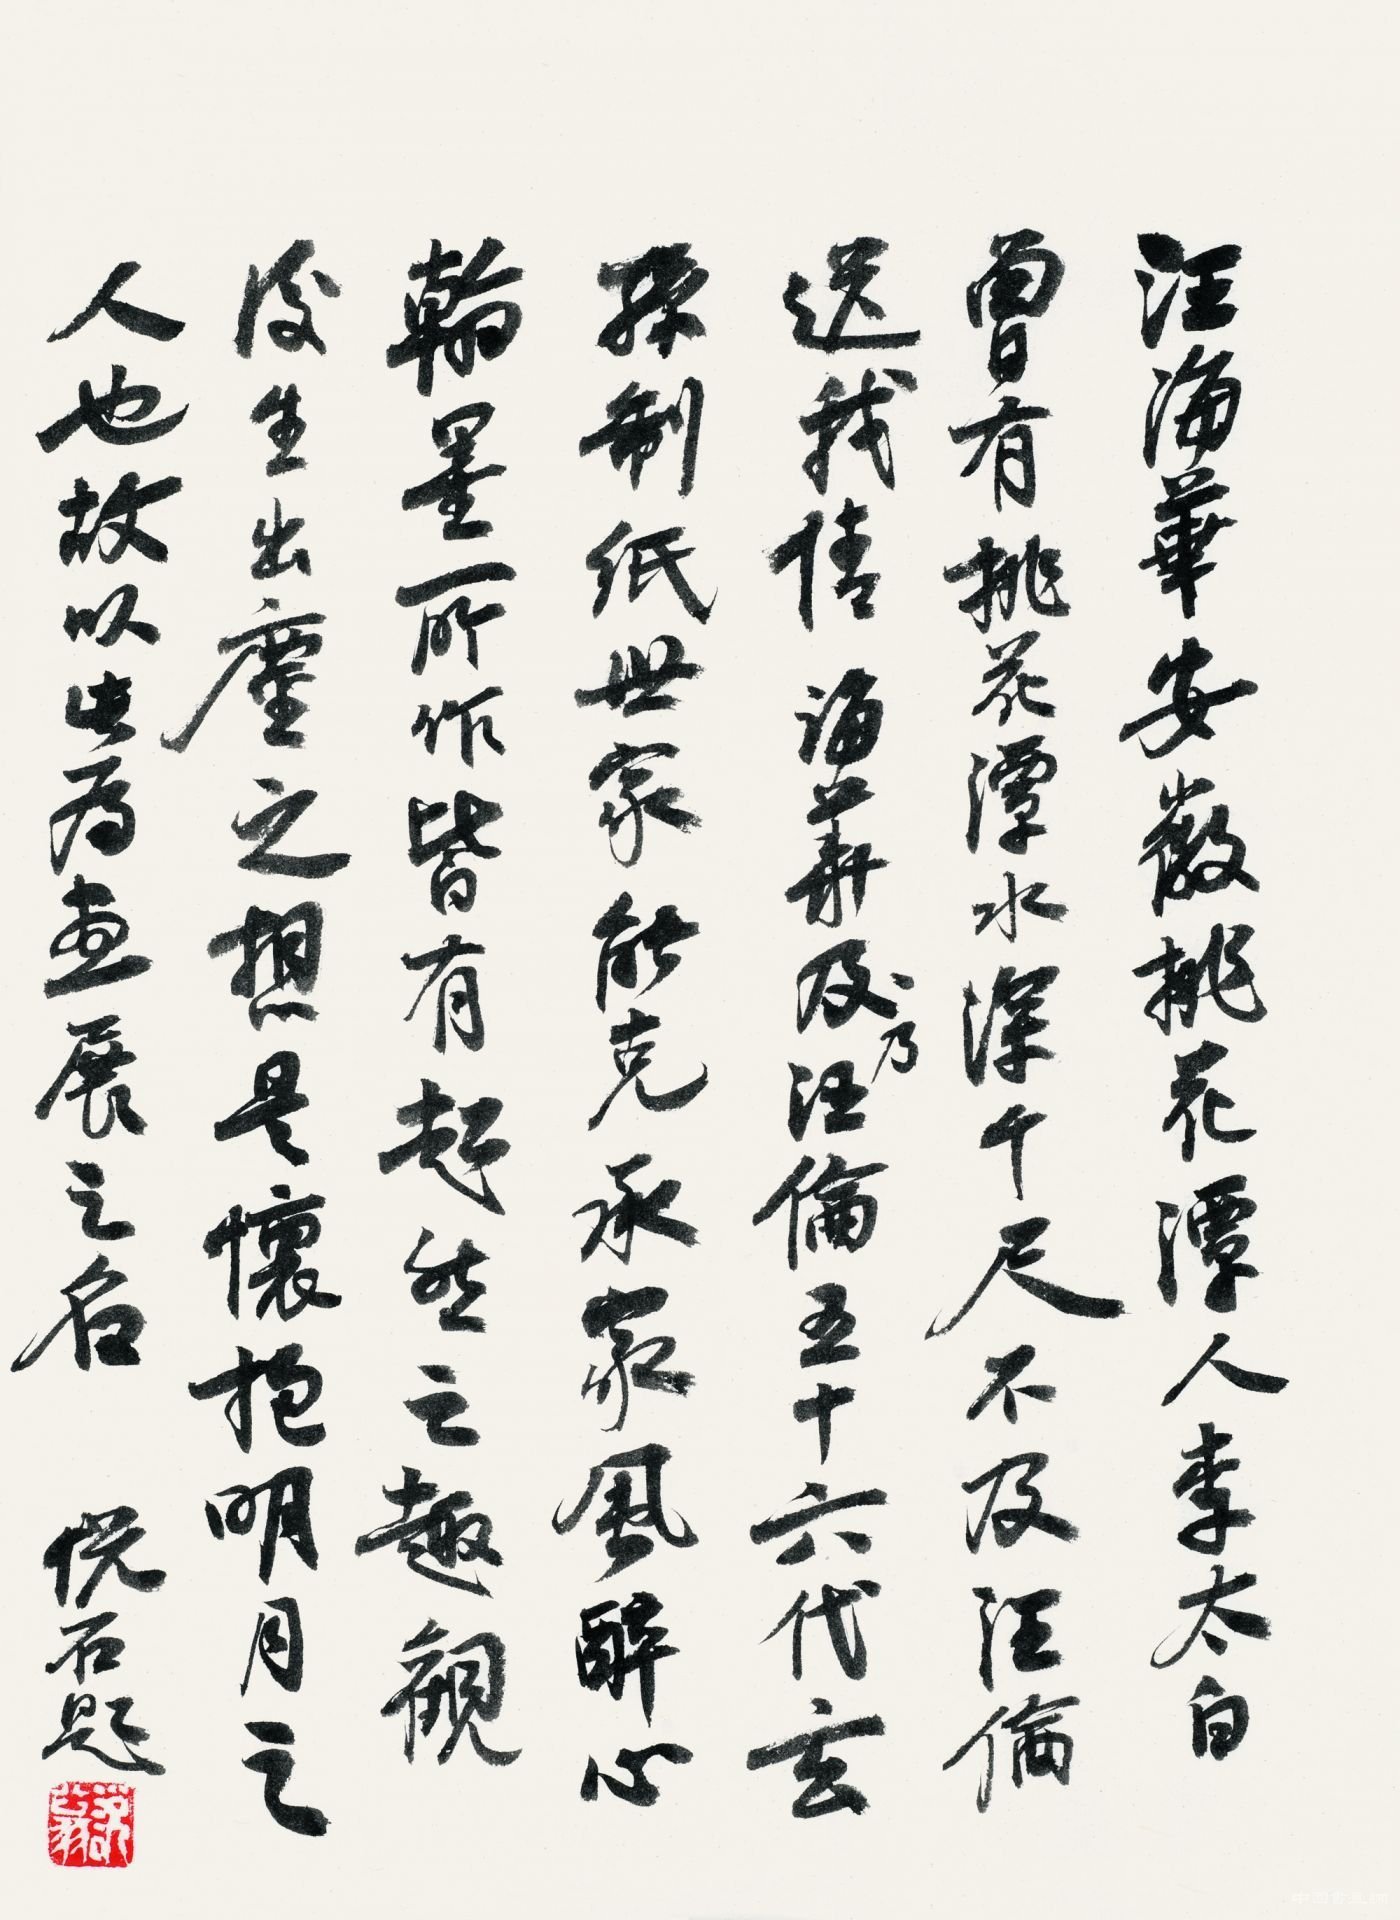 汪海華安徽桃花潭人李太白
曾有桃花潭水深千尺不及汪倫
送我情海華及乃汪倫五十六代玄
孫制紙世家能克承家風醉心
翰墨所作皆有超然之趣觀
後生出塵之想是懷抱明月之
人也故以此为畫展之名
悦石題